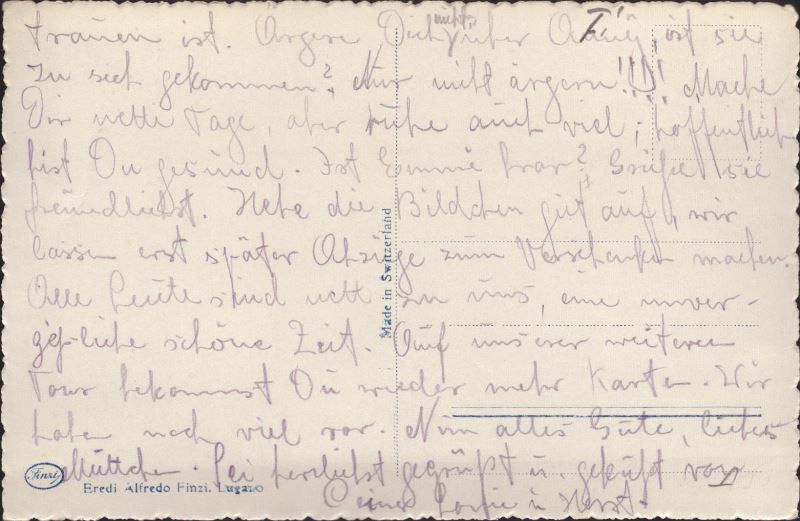 trauen ist. Ärgere Dich nicht über Anny, ist sie
zu sich gekommen? Nur nicht ärgern!!!! Mache
Dir nette Tage, aber ruhe auch viel; hoffentlich
bist Du gesund. Ist Emmi brav? Grüße sie
freundlichst. Hebe die Bildchen gut auf, wir
lassen erst später Abzüge zum Verschenken machen.
Alle Leute sind nett zu uns, eine unver-
geßliche schöne Zeit. Auf unserer weiteren
Tour bekommst Du wieder mehr Karten. Wir
haben noch viel vor. Nun alles Gute, liebes
Muttchen. Sei herzlichst gegrüßt u. geküßt von
Deinen u. Horst.
Made in Switzerland
Finzi
Eredi Alfredo Finzi. Lugano